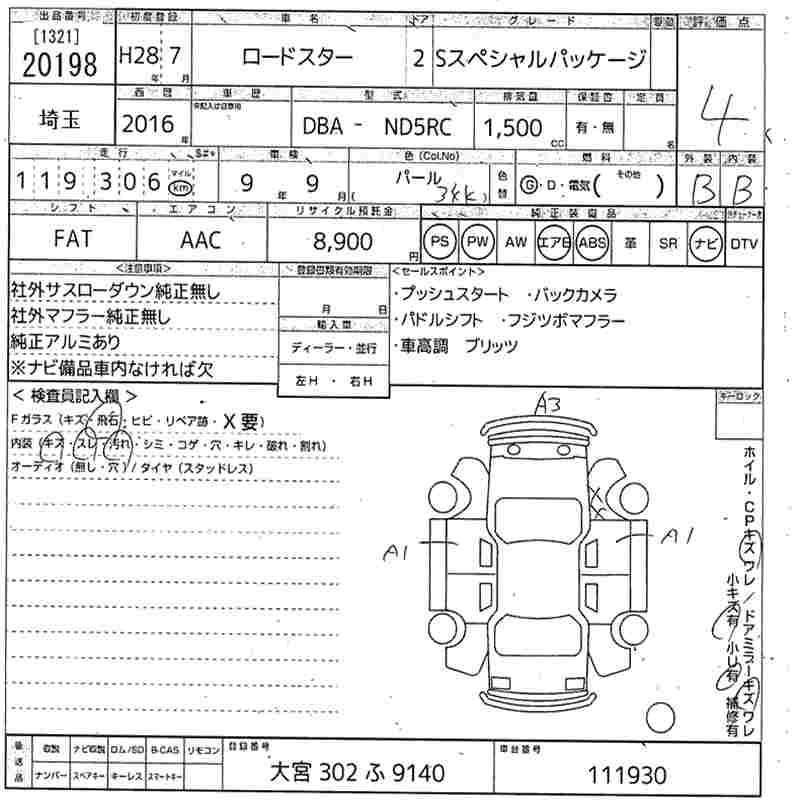 出品番号 初度登録 車名 ドア グレード 評価点
[1321]
20198 H28年 7月 ロードスター 2 Sスペシャルパッケージ 4
埼玉 西暦 車歴 型式 排気量 保証書 定員
2016年 DBA - ND5RC 1,500cc 有・無 名
走行 車検 色(Col.No) 燃料 外装 内装
119306 マイル km 9年 9月 パール 34K 色替 G・D・電気( その他 ) B B
シフト エアコン リサイクル預託金 純正装備品
FAT AAC 8,900円 PS PW AW エアB ABS 革 SR ナビ DTV
<注意事項> 登録書類有効期限 <セールスポイント>
社外サスローダウン純正無し
社外マフラー純正無し
純正アルミあり
※ナビ備品車内なければ欠
月 日
輸入車
ディーラー・並行
左H・右H
・プッシュスタート ・バックカメラ
・パドルシフト ・フジツボマフラー
・車高調 ブリッツ
<検査員記入欄>
Fガラス(キズ・飛石・ヒビ・リペア跡・X要)
内装(キズ・スレ・汚れ・シミ・コゲ・穴・キレ・破れ・割れ)
オーディオ(無し・穴)/タイヤ(スタッドレス)
キーロック
A3
X
X
A1 A1
ホイル・CPキズワレ/ドアミラーキズワレ
小キズ有/小U有 補修有
後送品 取説 ナビ取説 ロム/SD B-CAS リモコン 登録番号 車台番号
ナンバー スペアキー キーレス スマートキー 大宮 302 ふ 9140 111930